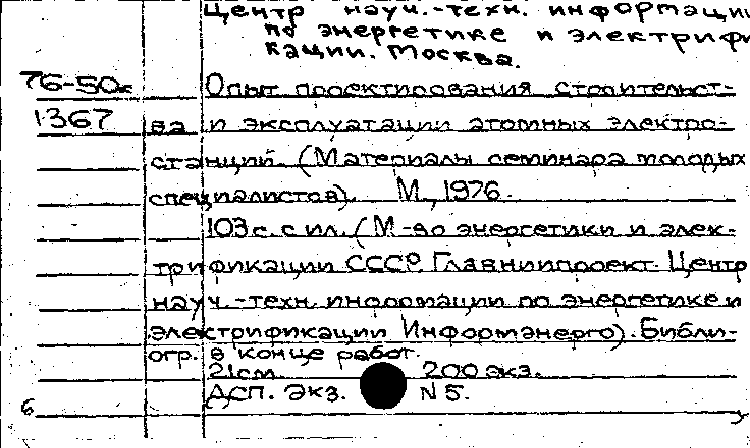 Центр науч.-техн. информации
по энергетике и электрифи
кации. Москва.
76-50с Опыт проектирования строительст-
1367 ва и эксплуатации атомных электро-
станций. (Материалы семинара молодых
специалистов). М., 1976.
103 с. с ил. (М-во энергетики и элек-
трификации СССР. Главниипроект. Центр
науч.-техн. информации по энергетике и
электрификации Информэнерго). Библи-
огр. в конце работ.
21 см. 200 экз.
ДСП. Экз. N 5.
6